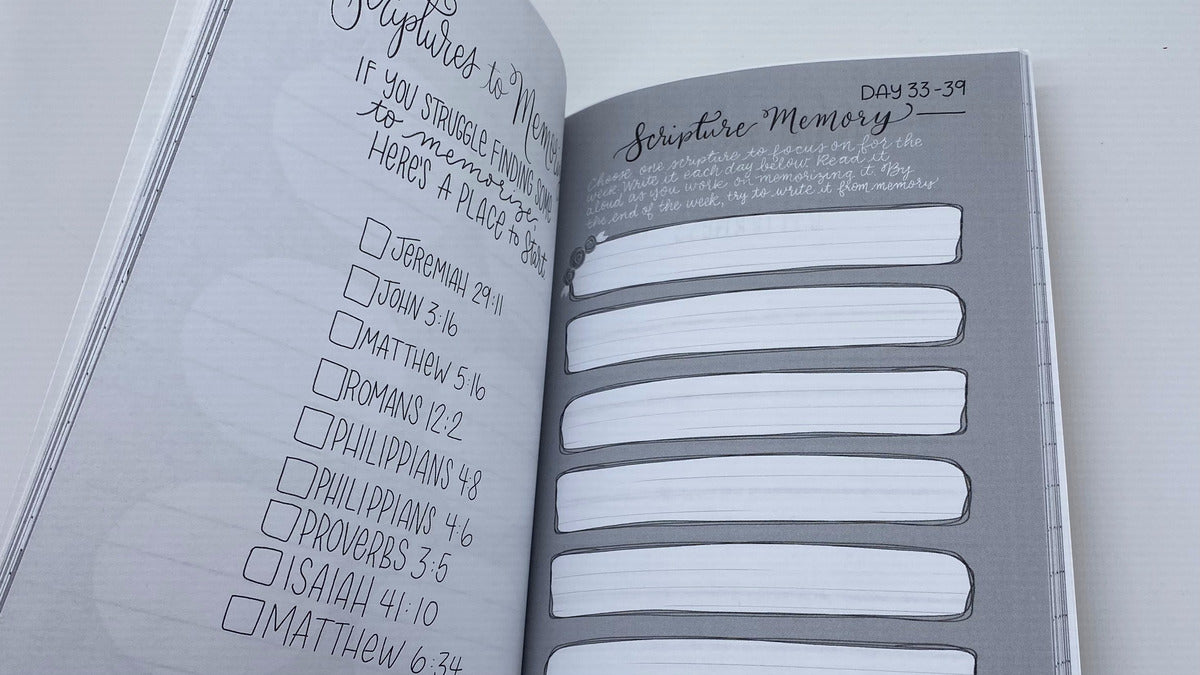 Scriptures to Memor
IF YOU STRUGGLE FINDING SOME
to memorize,
HERE'S A PLACE to Start
JEREMIAH 29:11
JOHN 3:16
MATTHEW 5:16
ROMANS 12:2
PHILIPPIANS 4:8
PHILIPPIANS 4:6
PROVERBS 3:5
ISAIAH 41:10
MATTHEW 6:34
DAY 33-39
Scripture Memory
Choose one scripture to focus on for the
week. Write it each day below. Read it
aloud as you work on memorizing it. By
the end of the week, try to write it from memory